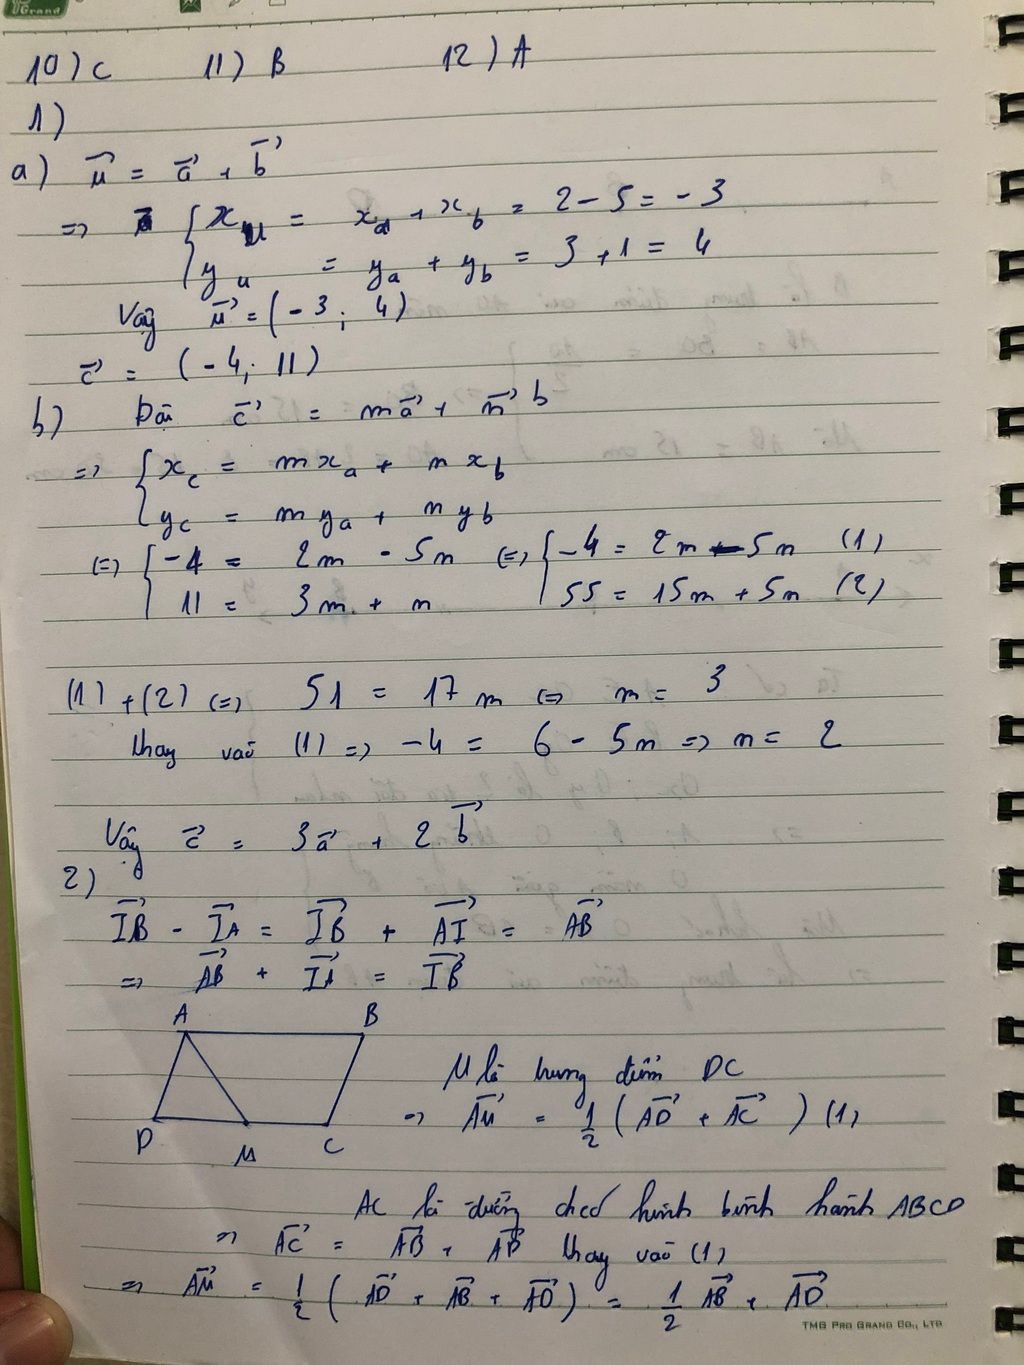 Grand
10) C 11) B 12) A
1)
a) \vec{u} = \vec{a} + \vec{b}
=> { x_u = x_a + x_b = 2 - 5 = -3
y_u = y_a + y_b = 3 + 1 = 4
Vậy \vec{u} = (-3; 4)
\vec{c} = (-4; 11)
b) \vec{c} = m\vec{a} + \vec{n} b
=> { x_c = m x_a + n x_b
y_c = m y_a + n y_b
<=> { -4 = 2m - 5n <=> { -4 = 2m - 5n (1)
11 = 3m + n 55 = 15m + 5n (2)
(1) + (2) <=> 51 = 17m <=> m = 3
thay vào (1) => -4 = 6 - 5n => n = 2
Vậy \vec{c} = 3\vec{a} + 2\vec{b}
2)
\vec{IB} - \vec{IA} = \vec{IB} + \vec{AI} = \vec{AB}
=> \vec{AB} + \vec{IA} = \vec{IB}
A B
M là trung điểm DC
=> \vec{AM} = \frac{1}{2} (\vec{AD} + \vec{AC}) (1)
D M C
AC là đường chéo hình bình hành ABCD
=> \vec{AC} = \vec{AB} + \vec{AD} thay vào (1)
=> \vec{AM} = \frac{1}{2} (\vec{AD} + \vec{AB} + \vec{AD}) = \frac{1}{2} \vec{AB} + \vec{AD}
TMG PRO GRAND CO., LTD